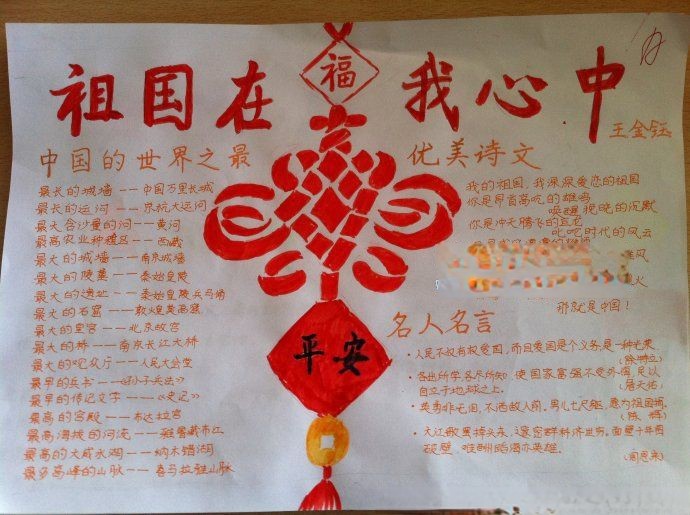 祖国在我心中
福
王金钰
中国的世界之最
最长的城墙——中国万里长城
最长的运河——京杭大运河
最大含沙量的河——黄河
最高农业种植区——西藏
最大的城墙——南京城墙
最大的陵墓——秦始皇陵
最大的遗址——秦始皇陵兵马俑
最大的石窟——敦煌莫高窟
最大的皇宫——北京故宫
最大的桥——南京长江大桥
最大的观众厅——人民大会堂
最早的兵书——《孙子兵法》
最早的传记文字——《史记》
最高的宫殿——布达拉宫
最高海拔的河流——雅鲁藏布江
最高的大咸水湖——纳木错湖
最多高峰的山脉——喜马拉雅山脉
平安
优美诗文
我的祖国,我深深爱恋的祖国
你是昂首高吭的雄鸡
唤醒拂晓的沉默
你是冲天腾飞的巨龙
叱咤时代的风云
风
火
那就是中国!
名人名言
·人民不仅有权爱国,而且爱国是个义务,是一种光荣
(徐特立)
·各出所学,各尽所知,使国家富强不受外侮,足以
自立于地球之上。
(詹天佑)
·英勇非无泪,不洒敌人前。男儿七尺躯,愿为祖国捐。
(陈辉)
·大江歌罢掉头东,邃密群科济世穷。面壁十年图
破壁,难酬蹈海亦英雄。
(周恩来)